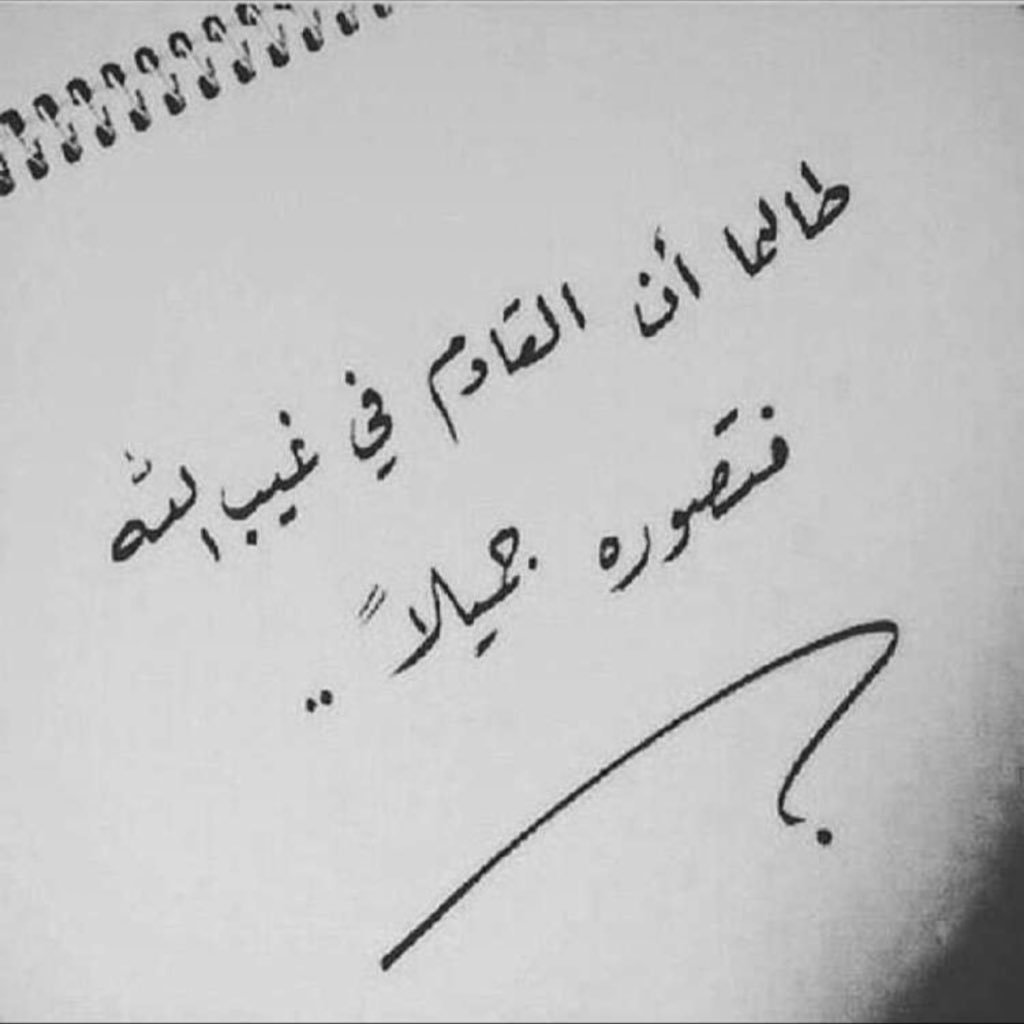 طالما أن القادم في غيب الله
فتصوره جميلاً ..